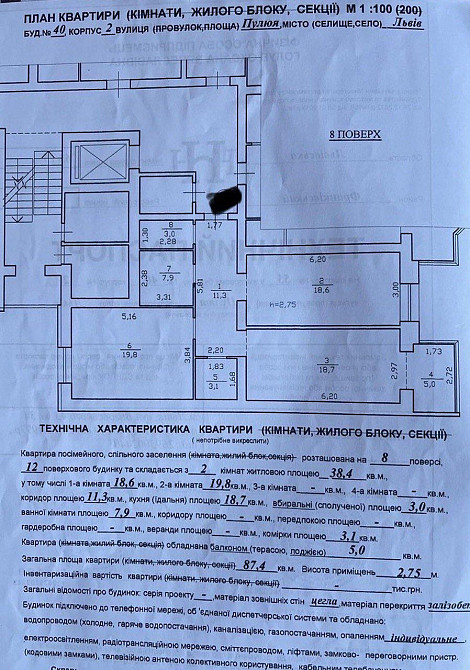 ПЛАН КВАРТИРИ (КІМНАТИ, ЖИЛОГО БЛОКУ, СЕКЦІЇ) М 1 :100 (200)
БУД.№ 40, КОРПУС 2 ВУЛИЦЯ (ПРОВУЛОК,ПЛОЩА) Пулюя, МІСТО (СЕЛИЩЕ,СЕЛО) Львів
8 ПОВЕРХ
1,77
8
3,0
2,28
1,30
7
7,9
3,31
2,38
5,81
1
11.3
6,20
2
18,6
h=2,75
3,00
5,16
6
19,8
3,84
2,20
1,83
5
3,1
1,68
3
18,7
6,20
2,97
1,73
4
5,0
2,72
ТЕХНІЧНА ХАРАКТЕРИСТИКА КВАРТИРИ (КІМНАТИ, ЖИЛОГО БЛОКУ, СЕКЦІЇ)
( непотрібне викреслити)
Квартира посімейного, спільного заселення (кімната,жилий блок,секція) розташована на 8 поверсі,
12 поверхового будинку та складається з 2 кімнат житловою площею 38,4 кв.м.,
у тому числі 1-а кімната 18,6 кв.м., 2-а кімната 19,8 кв.м., 3-а кімната - кв.м., 4-а кімната - кв.м.,
коридор площею 11,3 кв.м., кухня (їдальня) площею 18,7 кв.м., вбиральні (сполученої) площею 3,0 кв.м.,
ванної кімнати 7,9 кв.м., коридору площею - кв.м., передпокою площею - кв.м.,
гардеробна площею - кв.м., веранди площею - кв.м., комірки площею 3,1 кв.м.
Квартира (кімната,жилий блок, секція) обладнана балконом (терасою, лоджією) 5,0 кв.м.
Загальна площа квартири (кімнати, жилого блоку, секції) 87,4 кв.м. Висота приміщень 2,75 м.
Інвентаризаційна вартість квартири (кімнати,жилого блоку, секції) - тис.грн.
Загальні відомості про будинок: серія проекту - ,матеріал зовнішніх стін цегла ,матеріал перекриття залізобет
Будинок підключено до телефонної мережі, об'єднаної диспетчерської системи та обладнано:
водопроводом (холодне, гаряче водопостачання), каналізацією, газопостачанням, опаленням індивідуальне
електроосвітленням, радіотрансляційною мережею, сміттєпроводом, ліфтами, замково- переговорними пристр.
(кодовими замками), телевізійною антеною колективного користування,